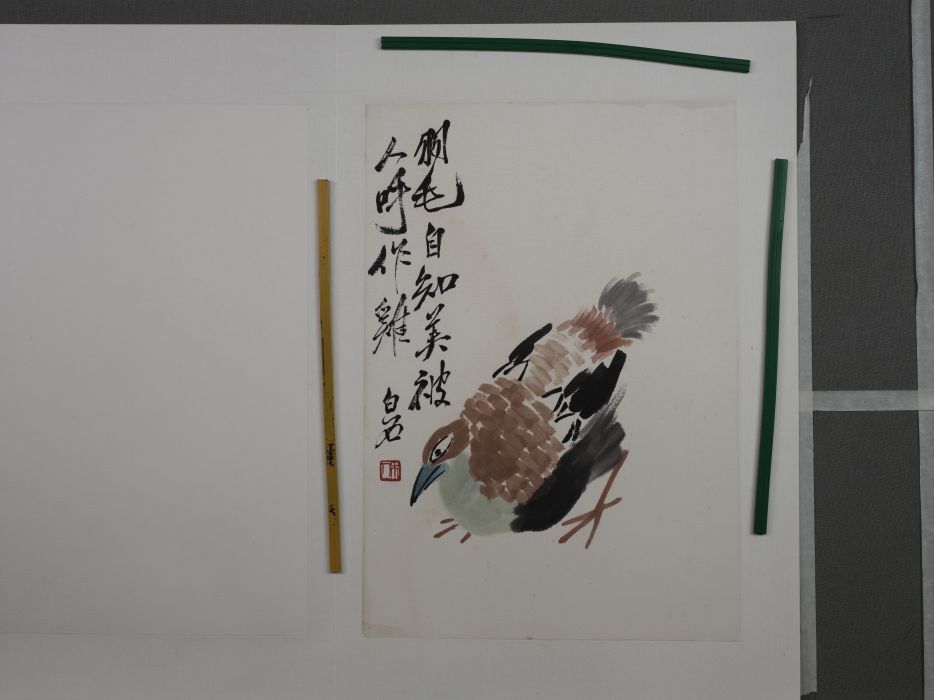 羽毛自知美被
人呼作雞
白石